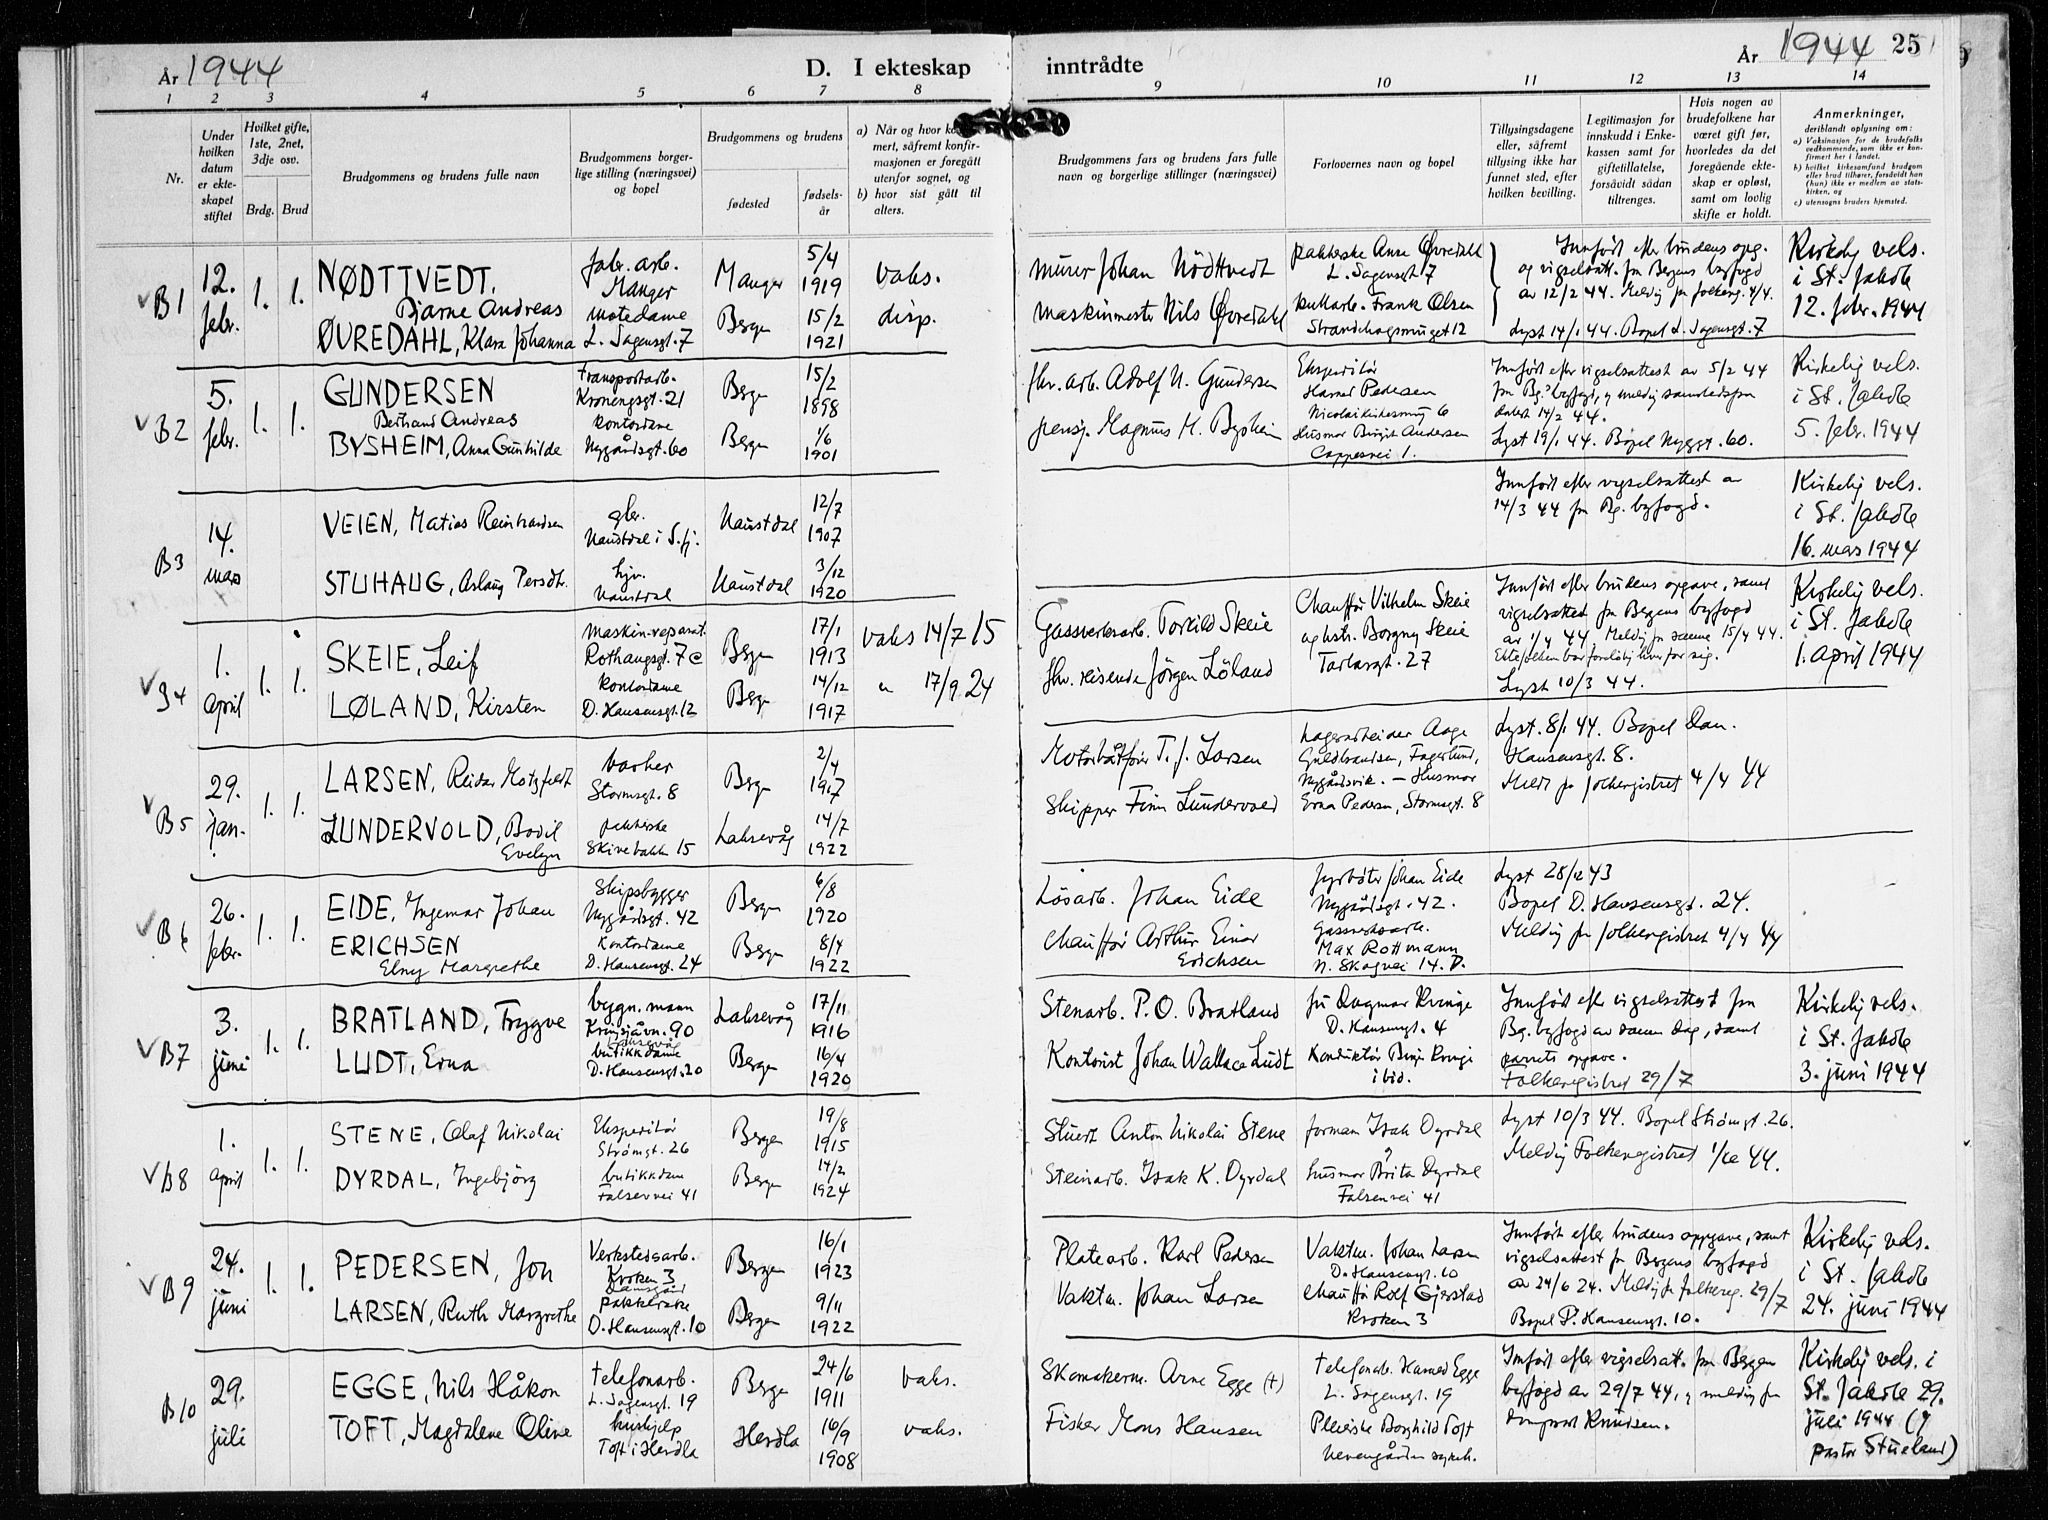 År 1944
D. I ekteskap
inntrådte
År 1944
25
1 2 3 4 5 6 7 8 9 10 11 12 13 14
Nr.
Under hvilken datum er ekteskapet stiftet
Hvilket gifte, 1ste, 2net, 3dje osv.
Brdg. Brud
Brudgommens og brudens fulle navn
Brudgommens borgerlige stilling (næringsvei) og bopel
Brudgommens og brudens
fødested
fødselsår
a) Når og hvor
mert, såfremt konfirmasjonen er foregått utenfor sognet, og
b) hvor sist gått til alters.
Brudgommens fars og brudens fars fulle navn og borgerlige stillinger (næringsvei)
Forlovernes navn og bopel
Tillysingsdagene eller, såfremt tillysing ikke har funnet sted, efter hvilken bevilling.
Legitimasjon for innskudd i Enkekassen samt for giftetillatelse, forsåvidt sådan tiltrenges.
Hvis nogen av brudefolkene har været gift før, hvorledes da det foregående ekteskap er opløst, samt om lovlig skifte er holdt.
Anmerkninger,
deriblandt oplysning om:
a) Vaksinasjon for de brudefolks vedkommende, som ikke er konfirmert her i landet.
b) hvilket kirkesamfund brudgom eller brud tilhører, forsåvidt han (hun) ikke er medlem av statskirken, og
c) utensogns bruders hjemsted.
B1 12. febr. 1. 1.
NØDTTVEDT, Bjarne Andreas
fabr. arb. Manger
Manger 5/4 1919 vaks.
ØVREDAHL, Klara Johanna
motedame L. Sagensgt. 7
Bergen 15/2 1921 disp.
murer Johan Nödttvedt
maskinmester Nils Øvredahl
pakkerske Anne Øvredahl L. Sagensgt 7
Frank Olsen Strandhagsmuget 12
Innført efter brudens opg. og vigselsatt. fra Bergens byfogd av 12/2 44. Meldig fra folkereg. 4/4.
Lyst 14/1 44. Bopel L. Sagensgt. 7
Kirkelig vels. i St. Jakob 12. febr. 1944
B2 5. febr. 1. 1.
GUNDERSEN Bertrand Andreas
transportarb. Kronengsgt. 21
Bergen 15/2 1898
BYSHEIM, Anna Gunhilde
kontordame Nygårdsgt. 60
Bergen 1/6 1901
fhv. arb. Adolf N. Gundersen
pensj. Magnus H. Bysheim
Ekspeditör Harald Pedersen Nicolaikirkesmug 6
Husmor Birgit Andersen Cappesvei 1.
Innført efter vigselsattest av 5/2 44 fra Bg.s byfogd, og meldig sammesteds fra datert 14/2 44.
Lyst 19/1 44. Bopel Nyggt. 60.
Kirkelig vels. i St. Jakob 5. febr. 1944
B3 14. mars
VEIEN, Matias Reinhardsen
gbr. Naustdal i S.fj.
Naustdal 12/7 1907
STUHAUG, Aslaug Persdtr.
hjv. Naustdal
Naustdal 3/12 1920
Innført efter vigselsattest av 14/3 44 fra Bg. byfogd.
Kirkelig vels. i St. Jakob 16. mars 1944
B4 1. april 1. 1.
SKEIE, Leif
maskin-reparat. Rothaugsgt. 7 c
Bergen 17/1 1913 vaks 14/7 15
LØLAND, Kirsten
kontordame D. Hansensgt. 12
Bergen 14/12 1917 " 17/9 24
Gassverksarb. Torkild Skeie
fhv. reisende Jörgen Löland
Chauffør Vilhelm Skeie og hstr. Borgny Skeie Tartargt. 27
Innført efter brudens opgave, samt vigselsattest fra Bergens byfogd av 1/4 44. Meldig fra samme 15/4 44.
Ektefolken bor foreløbig hver for sig.
Lyst 10/3 44.
Kirkelig vels. i St. Jakob 1. april 1944
B5 29. jan. 1. 1.
LARSEN, Reidar Motzfeldt
vasker Stormsgt. 8
Bergen 2/4 1917
LUNDERVOLD, Bodil Evelyn
pakkerske Skivebakken 15
Laksevåg 14/7 1922
Motorbåtfører T. J. Larsen
Skipper Finn Lundervold
Lagerarbeider Aage Guldbrandsen, Fagerlund, Nygårdsvik. – Husmor Erna Pedersen, Stormsgt. 8
Lyst. 8/1 44. Bopel Dan. Hansensgt. 8.
Meldt fra folkeregistret 4/4 44
B6 26. febr. 1. 1.
EIDE, Ingemar Johan
skipsbygger Nygårdsgt. 42
Bergen 6/8 1920
ERICHSEN Elny Margrethe
kontordame D. Hansensgt. 24
Bergen 8/4 1922
Lösarb. Johan Eide
Chauffør Arthur Einar Erichsen
Fyrbøter Johan Eide Nygårdsgt. 42.
Gassverksarb. Max Rottmann N. Skogvei 14. D.
Lyst 28/12 43
Bopel D. Hansensgt. 24.
Meldig fra folkeregistret 4/4 44
B7 3. juni 1. 1.
BRATLAND, Trygve
bygn. mann Kringsjåvn. 90 Laksevåg
Laksevåg 17/11 1916
LUDT, Erna
butikkdame D. Hansensgt. 20
Bergen 16/4 1920
Stenarb. P. O. Bratland
Kontorist Johan Wallace Ludt
fru Dagmar Kvinge D. Hansensgt. 4
Konduktör Kvinge ibid.
Innført efter vigselsattest fra Bg. byfogd av samme dag, samt parrets opgave.
Folkeregistret 29/7
Kirkelig vels. i St. Jakob 3. juni 1944
B8 1. april 1. 1.
STENE, Olaf Nikolai
Ekspeditør Strømgt. 26
Bergen 19/8 1915
DYRDAL, Ingebjörg
butikkdame Falsensvei 41
Bergen 14/2 1924
Stuert Anton Nikolai Stene
Steinarb. Isak K. Dyrdal
formann Isak Dyrdal og husmor Brita Dyrdal Falsenvei 41
Lyst 10/3 44. Bopel Strömgt. 26.
Meldig Folkeregistret 1/12 44.
B9 24. juni 1. 1.
PEDERSEN, Jon
Verkstedsarb. Kroken 3 Damsgård
Bergen 16/1 1923
LARSEN, Ruth Margrethe
pakkerske D. Hansensgt. 10
Bergen 9/11 1922
Platearb. Karl Pedersen
Vaktm. Johan Larsen
Vaktm. Johan Larsen D. Hansensgt. 10
Chauffør Rolf Gjerstad Kroken 3
Innført efter brudens oppgave, samt vigselsattest fra Bergens byfogd av 24/6 24. Meldig fr. folkereg. 29/7
Bopel D. Hansensgt. 10.
Kirkelig vels. i St. Jakob 24. juni 1944
B10 29. juli
EGGE, Nils Håkon
telefonarb. L. Sagensgt. 19
Bergen 24/6 1911 vaks.
TOFT, Magdalene Oline
hushjelp Toft i Herdla
Herdla 16/9 1908 vaks.
Skomakerm. Arne Egge (+)
Fisker Mons Hansen
telefonarb. Harald Egge L. Sagensgt. 19
Pleierske Borghild Toft Nevengården sykeh.
Innført efter vigselsatt. fra Bergen byfogd av 29/7 44, og meldig fra Knudsen.
Kirkelig vels. i St. Jakob 29. juli 1944 (v. pastor Stueland)